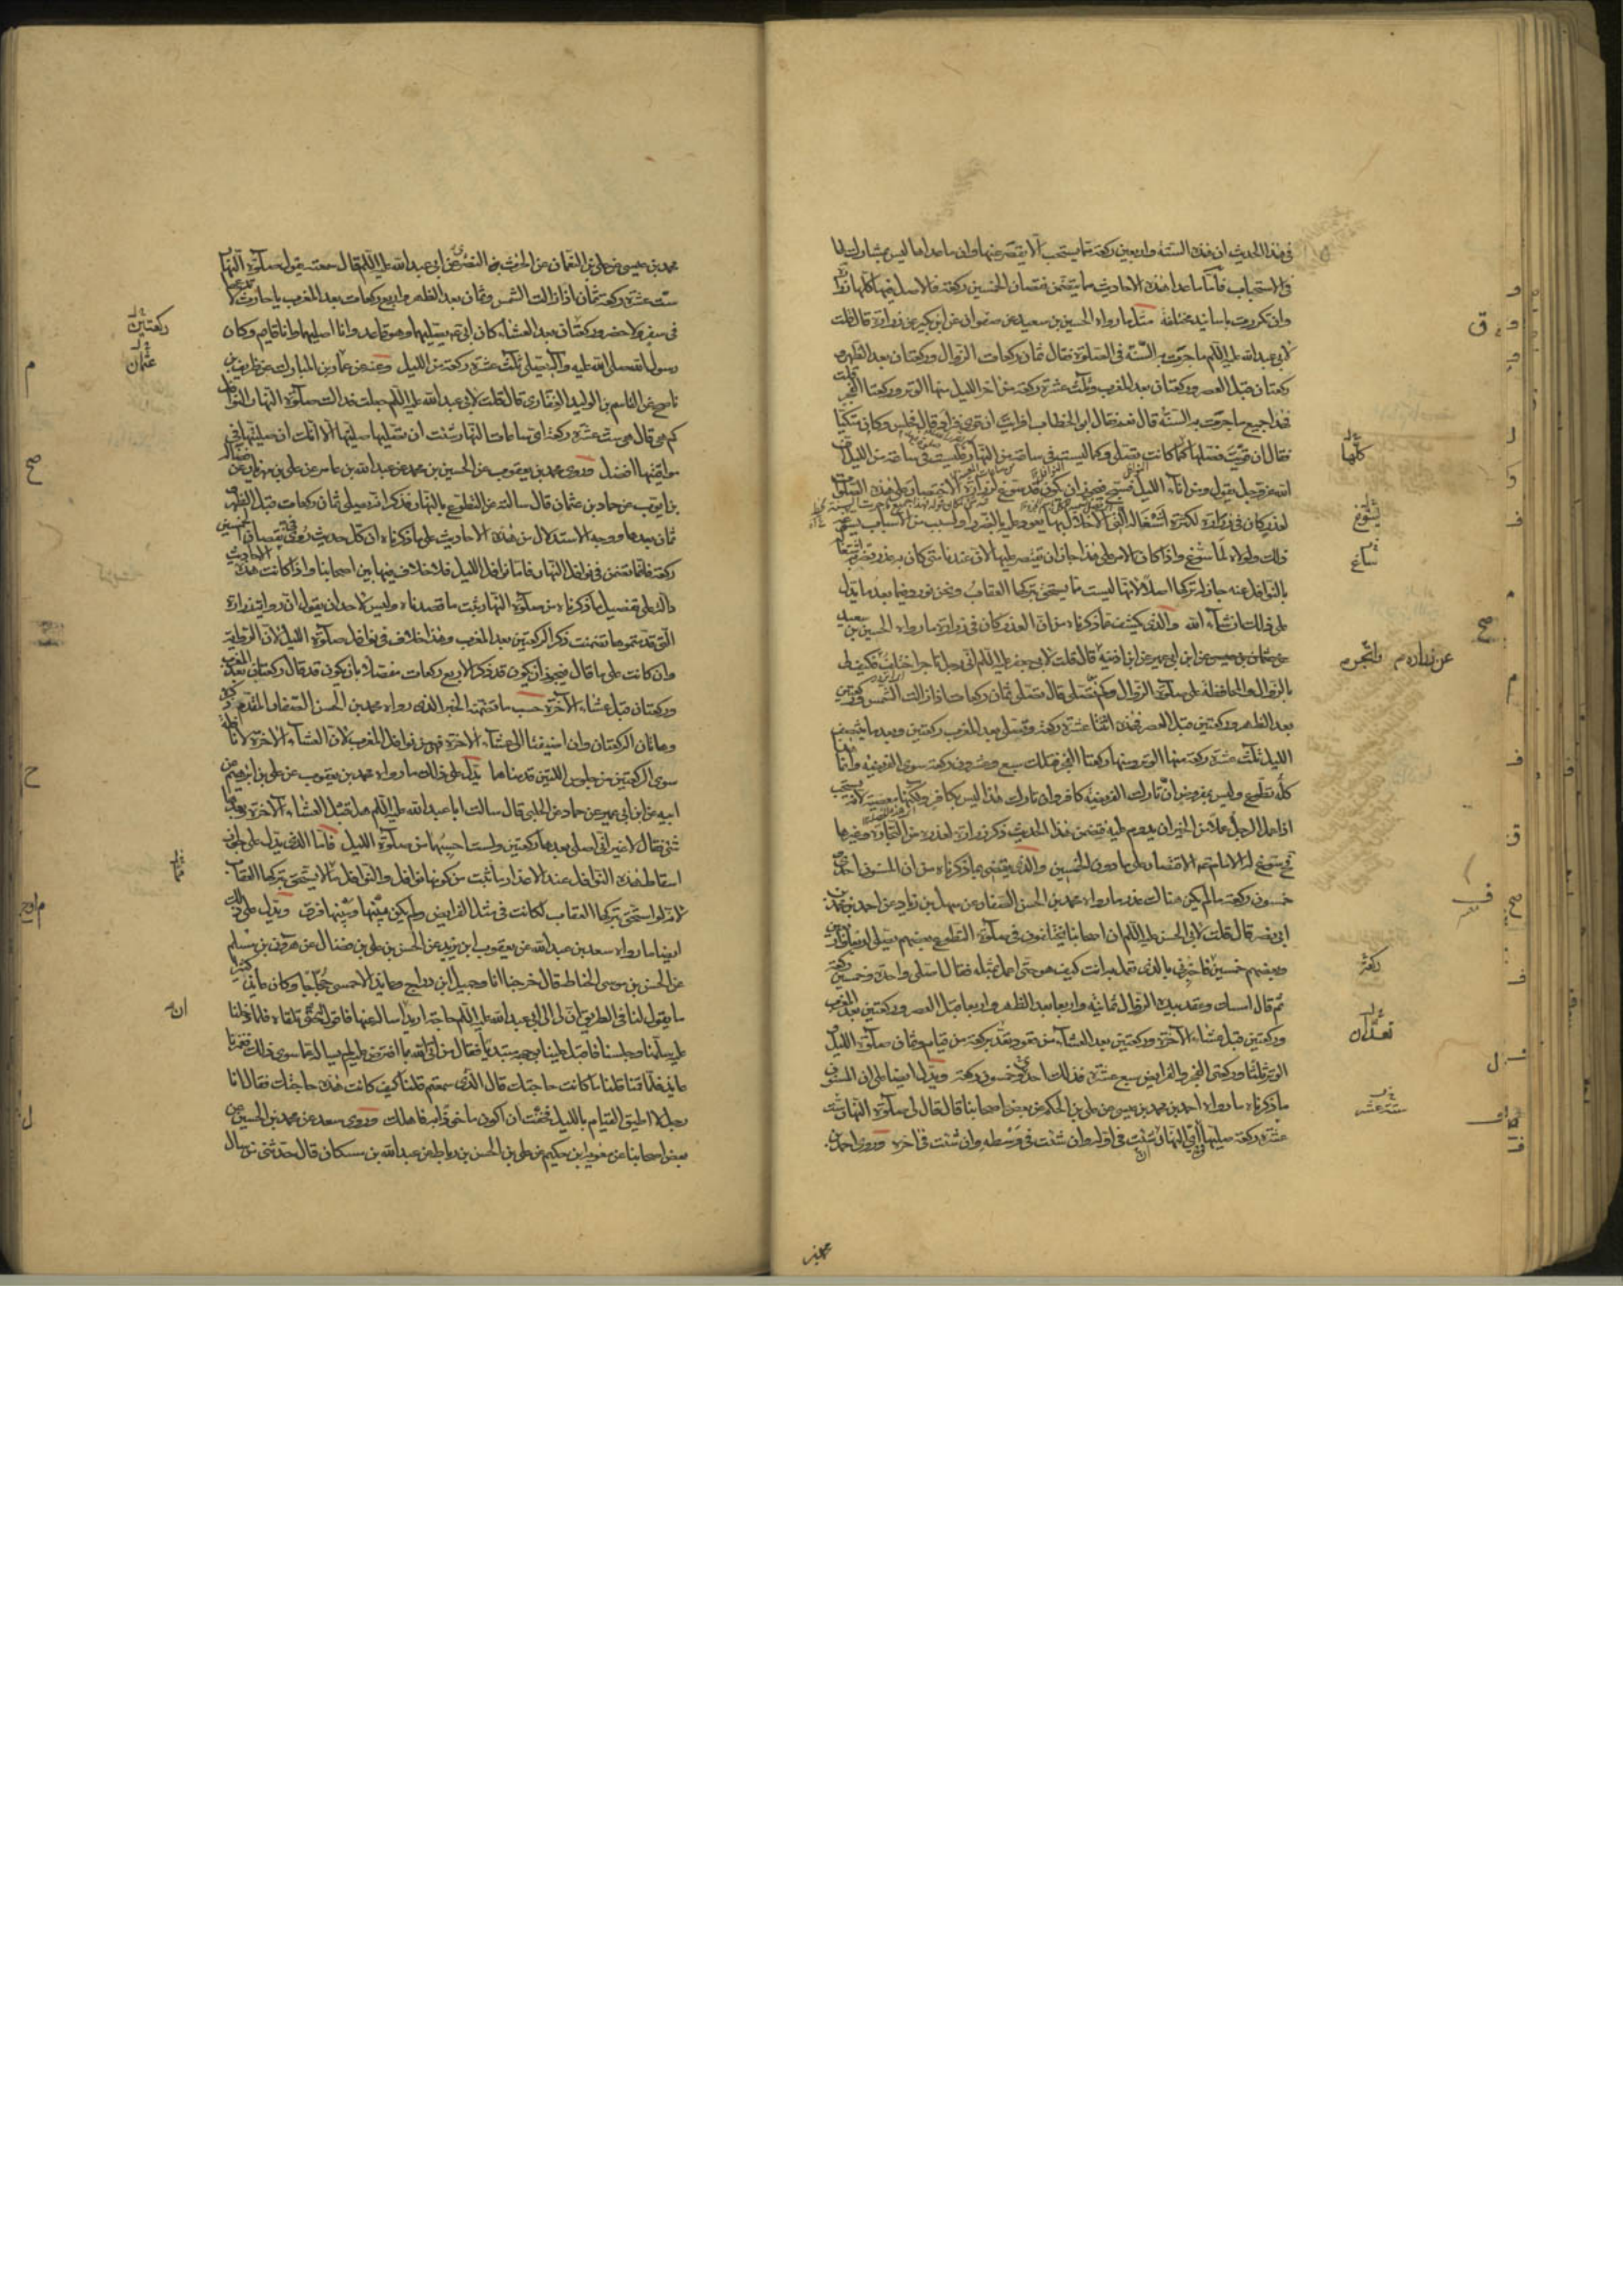 في هذا الحديث ان هذه الستة واربعين ركعة مما يستحب الا يقصر عنها وان ما عداها ليس بمشارك لها
في الاستحباب فاما ما عدا هذه الاحاديث مما يتضمن نقصان الخمسين ركعة فالاصل فيها كلها زرارة
وان تكررت باسانيد مختلفة مثل ما رواه الحسين بن سعيد عن صفوان عن ابن بكير عن زرارة قال قلت
لابي عبد الله عليه السلام ما جرت به السنة في الصلوة فقال ثمان ركعات الزوال وركعتان بعد الظهر
ركعتان قبل العصر وركعتان بعد المغرب وثلث عشرة ركعة من اخر الليل منها الوتر وركعتا الفجر قلت
فهذا جميع ما جرت به السنة قال نعم فقال ابو الخطاب افرايت ان قوي فزاد قال فجلس وكان متكيا
فقال ان قويت فصلها كما كانت تصلى وكما ليست في ساعة من النهار فليست في ساعة من الليل ان
الله عز وجل يقول ومن اناء الليل فسبح فيجوز ان يكون قد سوغ لزرارة الاقتصار على هذه الصلوات
لعذر كان في زرارة لكثرة اشغاله التي الاخلال بها يعود عليه بالضرر او لسبب من الاسباب يسوغ
ذلك ولولاه لما سوغ واذا كان الامر على هذا جاز ان يقتصر عليها لان عندنا متى كان به عذر يضر به اشتغاله
بالنوافل عنه جاز له تركها اصلا لانها ليست مما يستحق بتركها العقاب ونحن نورد فيما بعد ما يدل
على ذلك ان شاء الله والذي يكشف عما ذكرناه من ان العذر كان في زرارة ما رواه الحسين بن سعيد
عن عثمان بن عيسى عن ابن ابي عمير عن ابن اذينة قال قلت لابي جعفر عليه السلام اني رجل تاجر اختلف فكيف لي
بالزوال والمحافظة على صلوة الزوال وكم تصلى قال تصلى ثمان ركعات اذا زالت الشمس وركعتين
بعد الظهر وركعتين قبل العصر فهذه اثنتا عشرة ركعة وتصلي بعد المغرب ركعتين وبعد ما ينتصف
الليل ثلث عشرة ركعة منها الوتر ومنها ركعتا الفجر فتلك سبع وعشرون ركعة سوى الفريضة وانما هذا
كله تطوع وليس بمفروض ان تارك الفريضة كافر وان تارك هذا ليس بكافر ولكنها معصية لانه يستحب
اذا عمل الرجل عملا من الخير ان يدوم عليه فتضمن هذا الحديث ذكر زرارة لعذره من التجارة وغيرها
فسوغ له الامام عليه الاقتصار على ما دون الخمسين والذي يقضي بما ذكرناه من ان المسنون احدى
خمسون ركعة ما لم يكن هناك عذر ما رواه محمد بن الحسن الصفار عن سهل بن زياد عن احمد بن محمد بن
ابي نصر قال قلت لابي الحسن عليه السلام ان اصحابنا يختلفون في صلوة التطوع بعضهم يصلي اربعا واربعين
وبعضهم خمسين فاخبرني بالذي تعمل به انت كيف هو حتى اعمل بمثله فقال اصلي واحدة وخمسين ركعة
ثم قال امسك وعقد بيده الزوال ثمانية واربعا بعد الظهر واربعا قبل العصر وركعتين بعد المغرب
وركعتين قبل عشاء الآخرة وركعتين بعد العشاء من قعود تعد بركعة من قيام وثمان صلوة الليل
الوتر ثلثا وركعتي الفجر والفرايض سبع عشرة فذلك احدى وخمسون ركعة ويدل ايضا على ان المسنون
ما ذكرناه ما رواه احمد بن محمد بن عيسى عن علي بن الحكم عن بعض اصحابنا قال قال لي صلوة النهار ست
عشرة ركعة صلها اي النهار شئت في اوله وان شئت في وسطه وان شئت في اخره وروى احمد بن
كلها
يسوغ
ساغ
عن زرارة
ركعة
تعدان
ستة عشر
محمد بن عيسى عن علي بن النعمان عن الحرث بن النضري عن ابي عبد الله عليه السلام قال سمعته يقول صلوة النهار
ست عشرة ركعة ثمان اذا زالت الشمس وثمان بعد الظهر واربع ركعات بعد المغرب يا حارث لا تدعها
في سفر ولا حضر وركعتان بعد العشاء كان ابي عليه يصليهما وهو قاعد وانا اصليهما وانا قايم وكان
رسول الله صلى الله عليه وآله يصلي ثلث عشرة ركعة من الليل وعنه عن عمار بن المبارك عن ظريف بن
ناصح عن القاسم بن الوليد الغفاري قال قلت لابي عبد الله عليه السلام جعلت فداك صلوة النهار النوافل
كم هي قال هي ست عشرة ركعة اي ساعات النهار شئت ان تصليها صليتها الا انك ان صليتها في
مواقيتها افضل وروى محمد بن يعقوب عن الحسين بن محمد عن عبد الله بن عامر عن علي بن مهزيار عن فضالة
بن ايوب عن حماد بن عثمان قال سالته عن التطوع بالنهار فذكر انه يصلي ثمان ركعات قبل الظهر
ثمان بعدها ووجه الاستدلال من هذه الاحاديث على ما ذكرناه ان كل حديث روي في نقصان الخمسين
ركعة فانما تضمن في نوافل النهار فاما نوافل الليل فلا خلاف فيها بين اصحابنا واذا كانت هذه الاحاديث
دالة على تفصيل ما ذكرناه من صلوة النهار ثبت ما قصدناه وليس لاحد ان يقول ان رواية زرارة
التي قدمتموها تضمنت ذكر الركعتين بعد المغرب وهذا خلاف في نوافل صلوة الليل لان الرواية
وان كانت على ما قال فيجوز ان يكون قد ذكر الاربع ركعات مفصلا بان يكون قد قال ركعتان بعد المغرب
وركعتان قبل عشاء الآخرة حسب ما تضمنه الخبر الذي رواه محمد بن الحسن الصفار المقدم ذكره
وهاتان الركعتان وان اضيفتا الى عشاء الآخرة فهو من نوافل المغرب لان العشاء الآخرة لا نافلة
سوى الركعتين من جلوس اللتين قدمناهما يدل على ذلك ما رواه محمد بن يعقوب عن علي بن ابرهيم عن
ابيه عن ابن ابي عمير عن حماد عن الحلبي قال سالت ابا عبد الله عليه السلام هل قبل العشاء الآخرة وبعدها
شئ فقال لا غير اني اصلي بعدها ركعتين ولست احسبهما من صلوة الليل فاما الذي يدل على جواز
اسقاط هذه النوافل عند الاعذار ما ثبت من كونها نوافل والنوافل مما لا يستحق بتركها العقاب
لانه لو استحق بتركها العقاب لكانت في مثل الفرايض ولم يكن بينها وبينها فرق ويدل على ذلك
ايضا ما رواه سعد بن عبد الله عن يعقوب بن يزيد عن الحسن بن علي بن فضال عن هرون بن مسلم
عن الحسن بن موسى الحناط قال خرجنا انا وجميل ابن دراج وعايذ الاحمسي حجاجا وكان عايذ كثيرا
ما يقول لنا في الطريق ان لي الى ابي عبد الله عليه السلام حاجة اريد ان اساله عنها فاقول له حتى تلقاه فلما دخلنا
عليه سلمنا وجلسنا فاقبل علينا بوجهه مبتديا فقال من اتى الله بما افترض عليه لم يساله عما سوى ذلك فغمزنا
عايذ فلما قمنا قلنا ما كانت حاجتك قال الذي سمعتم قلنا كيف كانت هذه حاجتك فقال انا
رجل لا اطيق القيام بالليل فخفت ان اكون ماخوذا به فاهلك وروى سعد عن محمد بن الحسين عن
بعض اصحابنا عن معوية بن حكيم عن علي بن الحسن بن رباط عن عبد الله بن مسكان قال حدثني من سال
ركعتين
عثمان